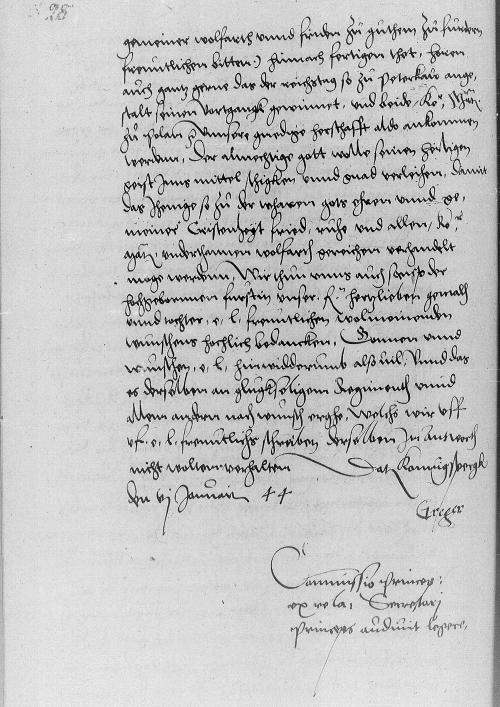 28
gemeiner wolfarth unnd frieden zu guthem zu fürdern
freuntlichen bitten.) hinach fertigen thet, hören
auch gantz gerne das der reichstag so zu Peterkau ange-
stalt seinen vortgangk gewinnet, und beide Ko.
zu Polan unsere gnedige herschafft aldo ankommen
werden, Der almechtige gott wolle seinen heiligen
geist Inns mittel schicken unnd gnad verleihen, damit
das Jhenige so zu der wharen gots ehren unnd ge-
meiner Cristenheit fried, ruhe und allen, ko
undterthanen wolfarth gereichen verhandelt
moge werden, Wir thun unns auch seent der
hochgebornnen furstin unser fr hertzlieben gemalh
unnd tochter, e. l. freuntlichen wolmeinenden
wunschens hochlich bedancken, Gonnen unnd
wunschen, e. l. hinwidderumb also vil, Unnd das
es derselben an glugkseligem Regimenth unnd
allem andern nach wunsch erghe, Welchs wir uff
uf. e. l. freuntlichs schreiben derselben In antworth
nicht wolten verhalten Dat Konnigspergk
den vj Januarii 44
Commissio Princip:
ex rela: Secretarij
Princeps audivit legere,